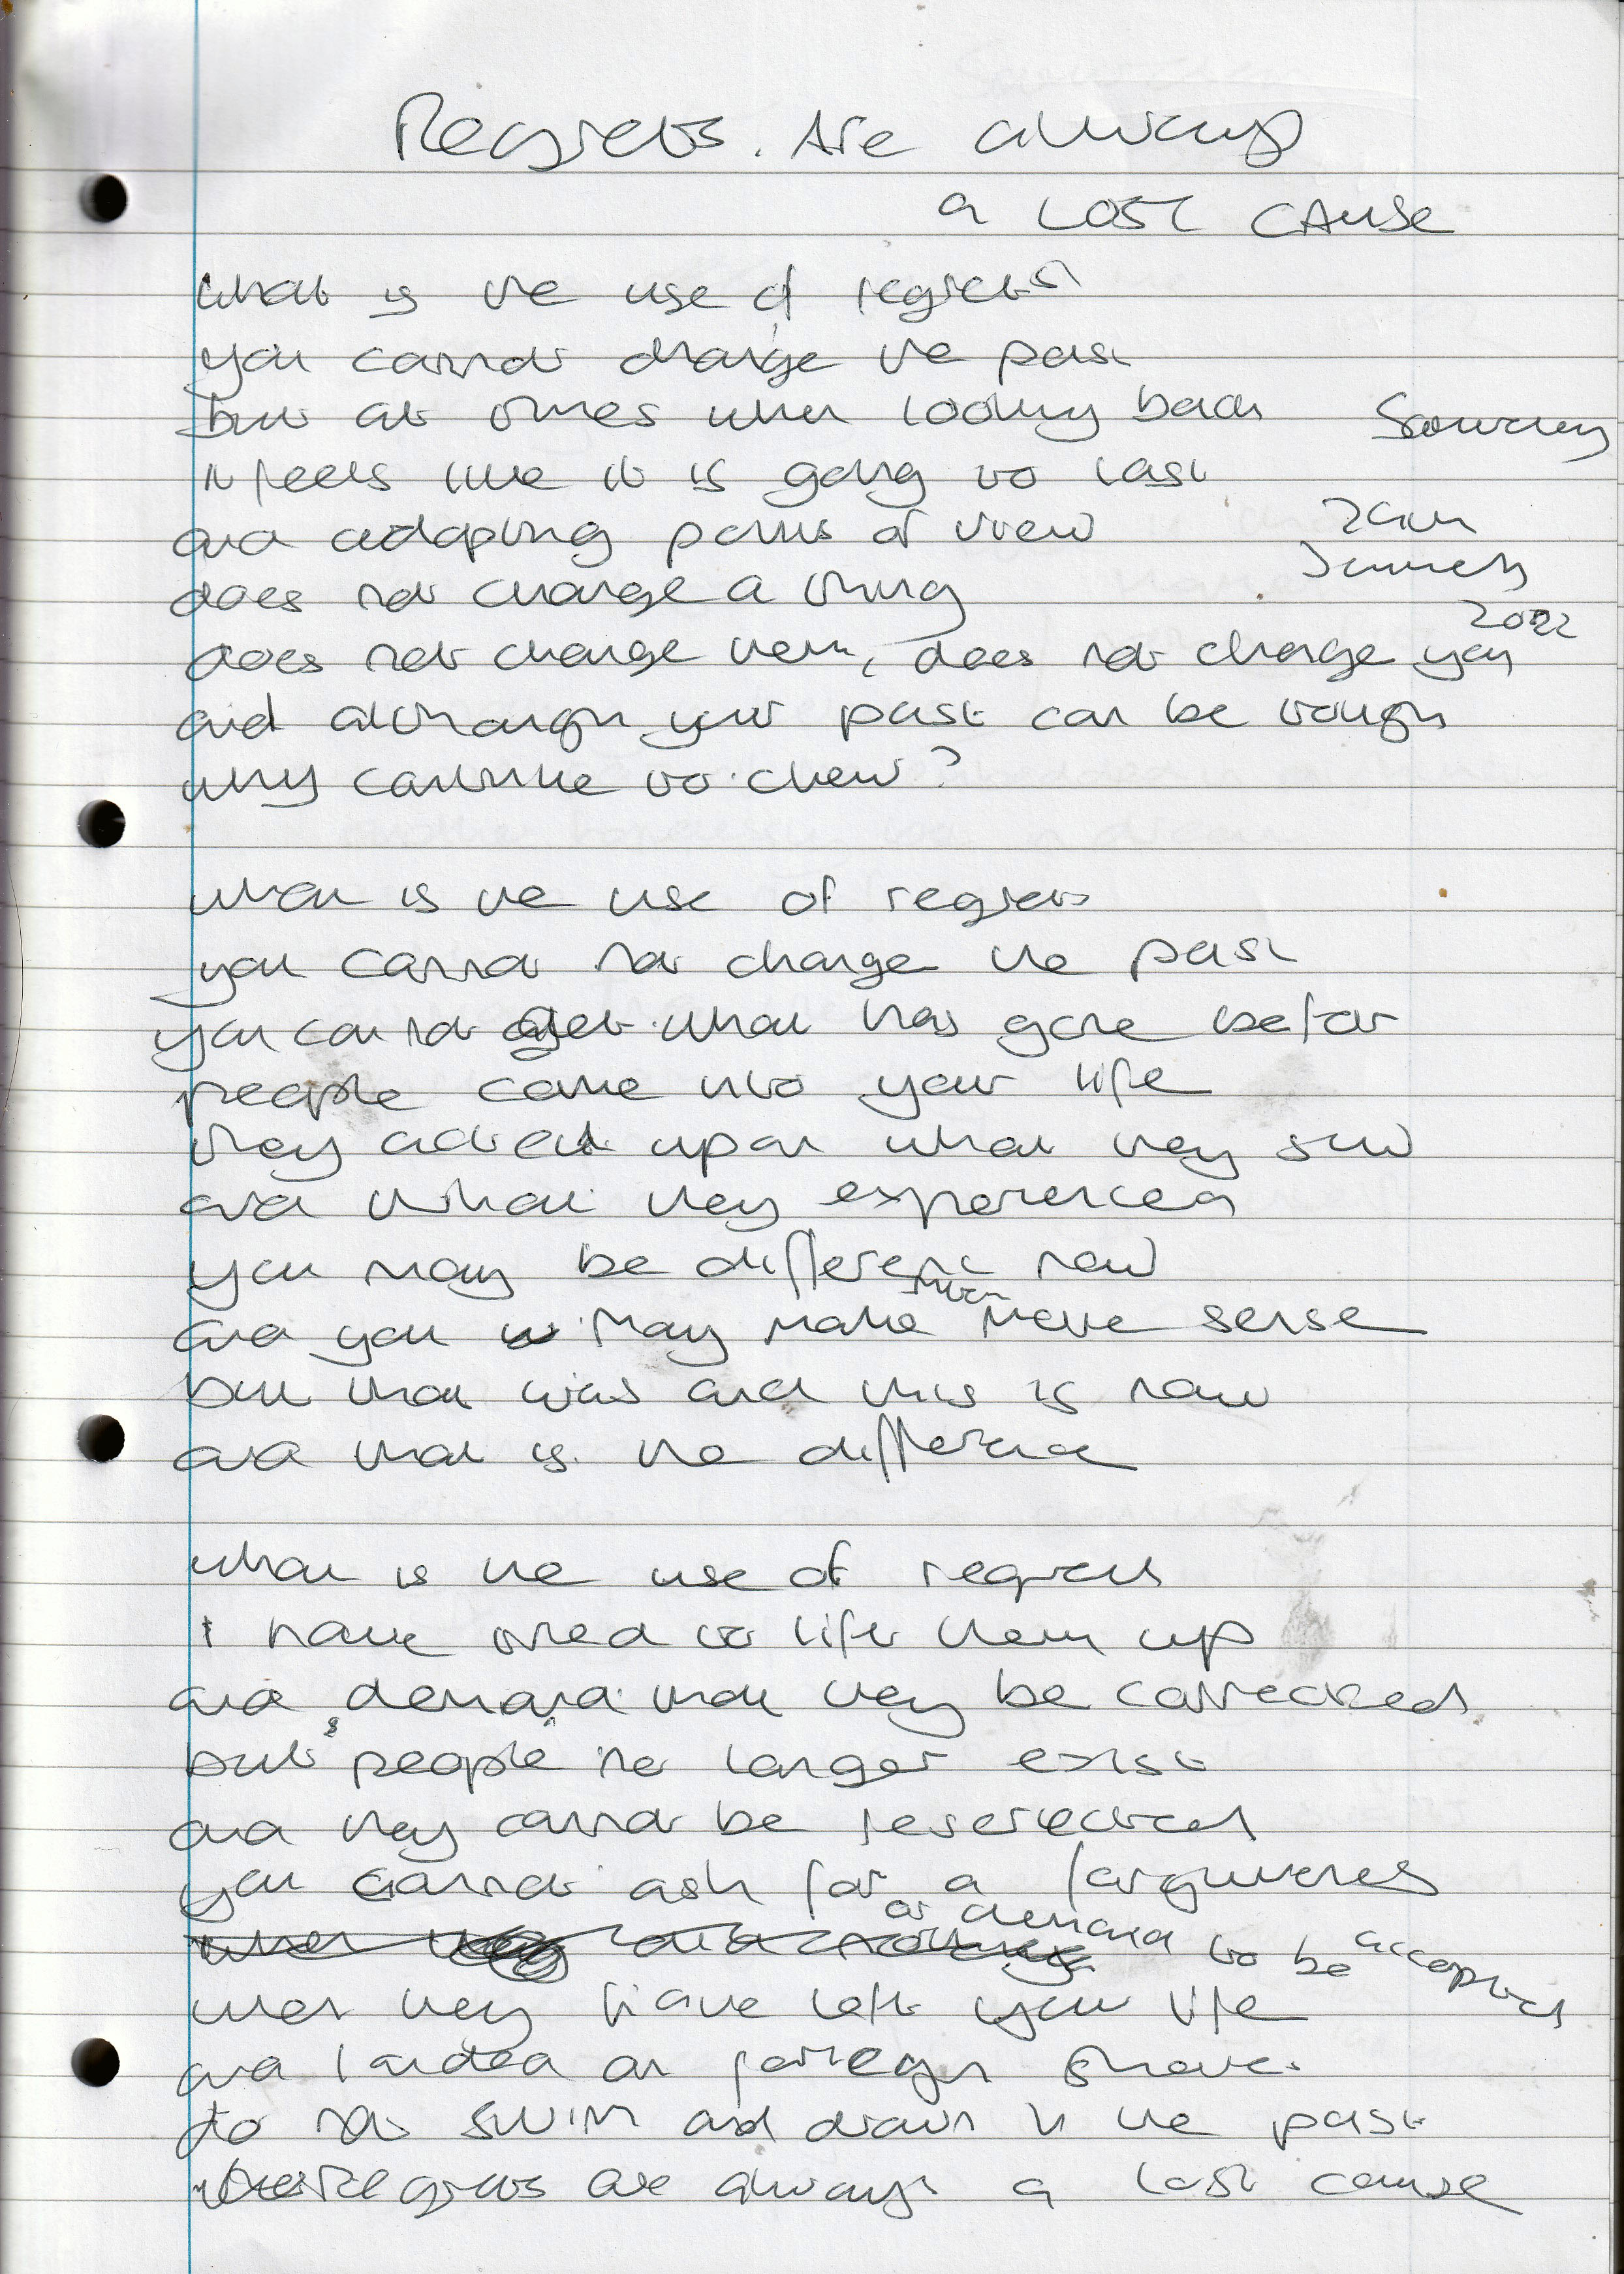 Regrets. Are always
a LOST CAUSE
what is the use of regrets
you cannot change the past
but at times when looking back
Saturday
it feels like it is going to last
29th
and adapting points of view
January
does not change a thing
2022
does not change them, does not change you
and although your past can be tough
why continue to chew?
what is the use of regrets
you cannot not change the past
you can not alter what has gone before
people came into your life
they acted upon what they saw
and what they experienced
you may be different now
and you may make more sense
but that was and this is now
and that is the difference
what is the use of regrets
I have tried to lift them up
and demand that they be corrected
but people no longer exist
and they cannot be reserected
you cannot ask for a forgiveness
or demand to be accepted
when they have left your life
and landed on foreign shores
to not swim and drown in the past
Regrets are always a lost cause